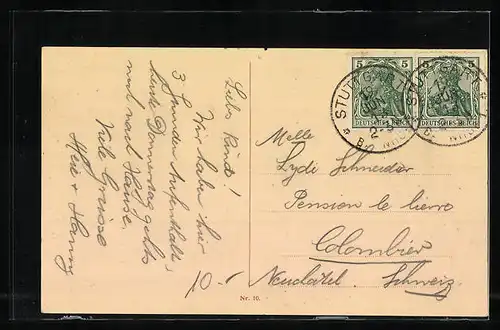 Liebes Kind!
Wir haben hier
3 Stunden Aufenthalt,
heute Donnerstag gehts
noch nach Hause.
Viele Grüsse
+ Hanny
10.-
5 5
DEUTSCHES REICH DEUTSCHES REICH
STUTTGART STUTTGART
2-3
Melle
Lydi Schneider
Pension le lierre
Colombier
Neuchâtel. Schweiz
Nr. 10.